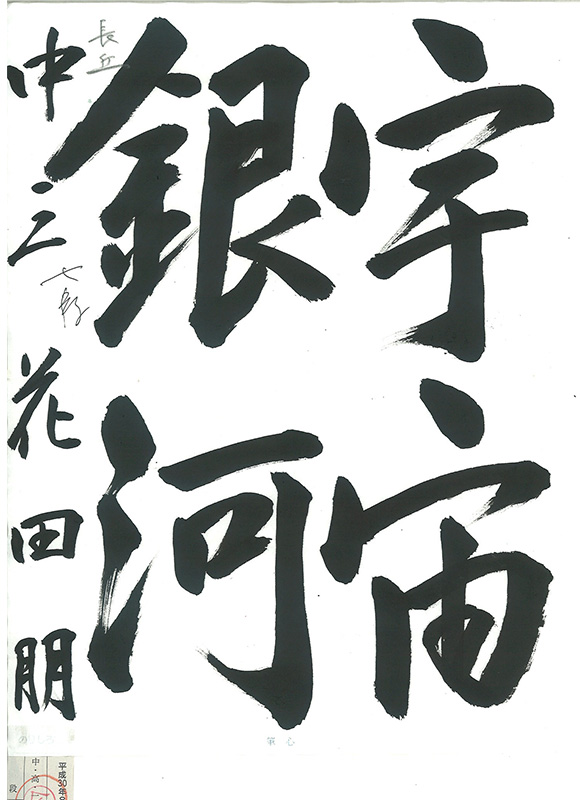 宇宙
銀河
中三 花田朋
長丘
七段
平成30年
中・高・
段